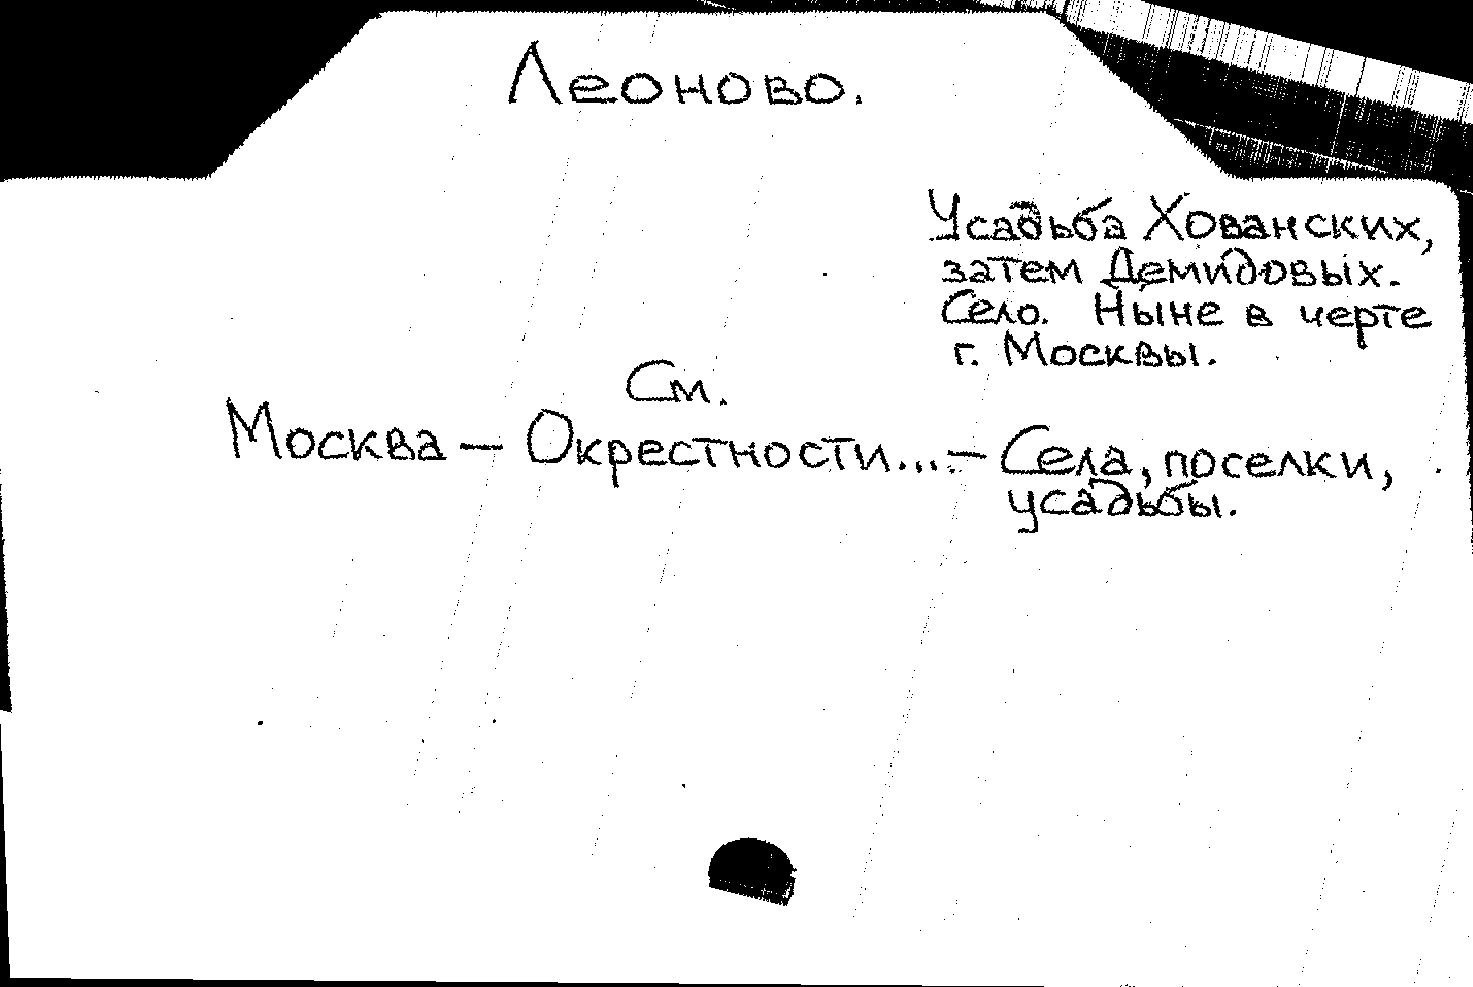 Леоново.
Усадьба Хованских,
затем Демидовых.
Село. Ныне в черте
г. Москвы.
См.
Москва — Окрестности... — Села, поселки,
усадьбы.